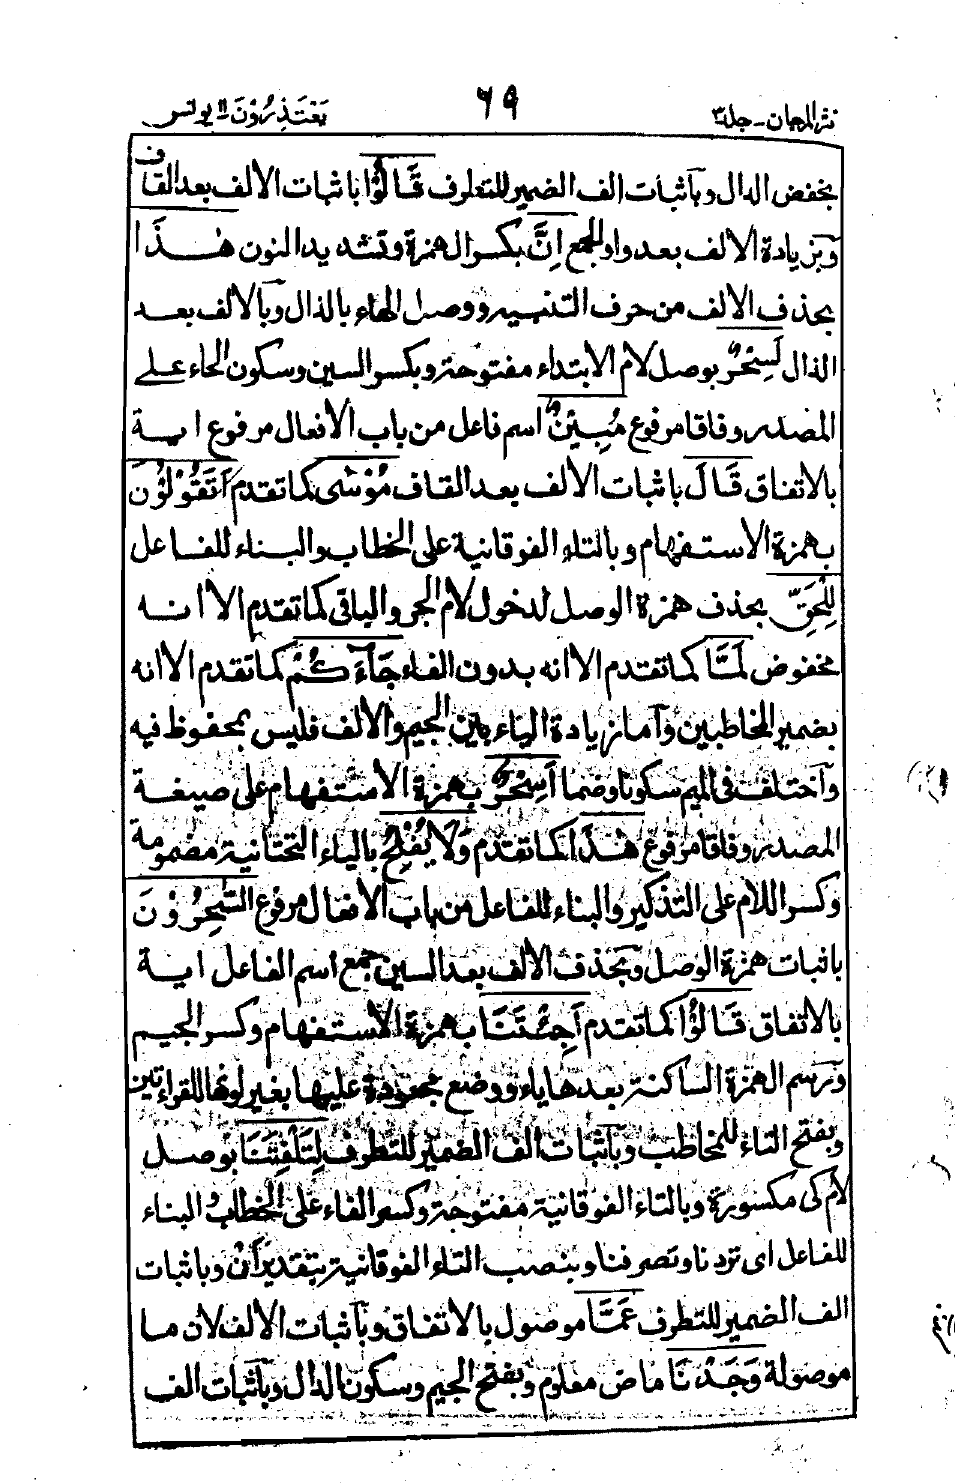 نثر المرجان - جلد ٣
٦٩
يَعْتَذِرُوْنَ ١١ يونس
بخفض الدال وبآثبات الف الضمير للتطرف قَالُوْا باثبات الالف بعد القاف
وبزيادة الالف بعد واو الجمع اِنَّ بكسر الهمزة وتشديد النون هٰذَا
بحذف الالف من حرف التنبيه ووصل الهاء بالذال وبالالف بعد
الذال لَسِحْرٌ بوصل لام الابتداء مفتوحة وبكسر السين وسكون الحاء على
المصدر وفاقا مرفوع مُبِيْنٌ اسم فاعل من باب الافعال مرفوع اية
بالاتفاق قَالَ باثبات الالف بعد القاف مُوْسٰى كما تقدم اَتَقُوْلُوْنَ
بهمزة الاستفهام وبالتاء الفوقانية على الخطاب والبناء للفاعل
لِلْحَقِّ بحذف همزة الوصل لدخول لام الجر والباقى كما تقدم الا انه
مخفوض لَمَّا كما تقدم الا انه بدون الفاء جَآءَكُمْ كما تقدم الا انه
بضمير المخاطبين وآما زيادة الياء بين الجيم والالف فليس بمحفوظ فيه
وآختلف فى الميم سكونا وضما اَسِحْرٌ بهمزة الاستفهام على صيغة
المصدر وفاقا مرفوع هٰذَا كما تقدم وَلَا يُفْلِحُ بالياء التحتانية مضمومة
وكسر اللام على التذكير والبناء للفاعل من باب الافعال مرفوع السّٰحِرُوْنَ
باثبات همزة الوصل وبحذف الالف بعد السين جمع اسم الفاعل اية
بالاتفاق قَالُوْا كما تقدم اَجِئْتَنَا بهمزة الاستفهام وكسر الجيم
وبرسم الهمزة الساكنة بعدها ياء ووضع مجعودة عليها بغير لونها للقراءتين
وبفتح التاء للمخاطب وبآثبات الف الضمير للتطرف لِتَلْفِتَنَا بوصل
لام كى مكسورة وبالتاء الفوقانية مفتوحة وكسر الفاء على الخطاب والبناء
للفاعل اى تردنا وتصرفنا وبنصب التاء الفوقانية بتقدير اَنْ وباثبات
الف الضمير للتطرف عَمَّا موصول بالاتفاق وبآثبات الالف لان ما
موصولة وَجَدْنَا ماض معلوم وبفتح الجيم وسكون الدال وبآثبات الف